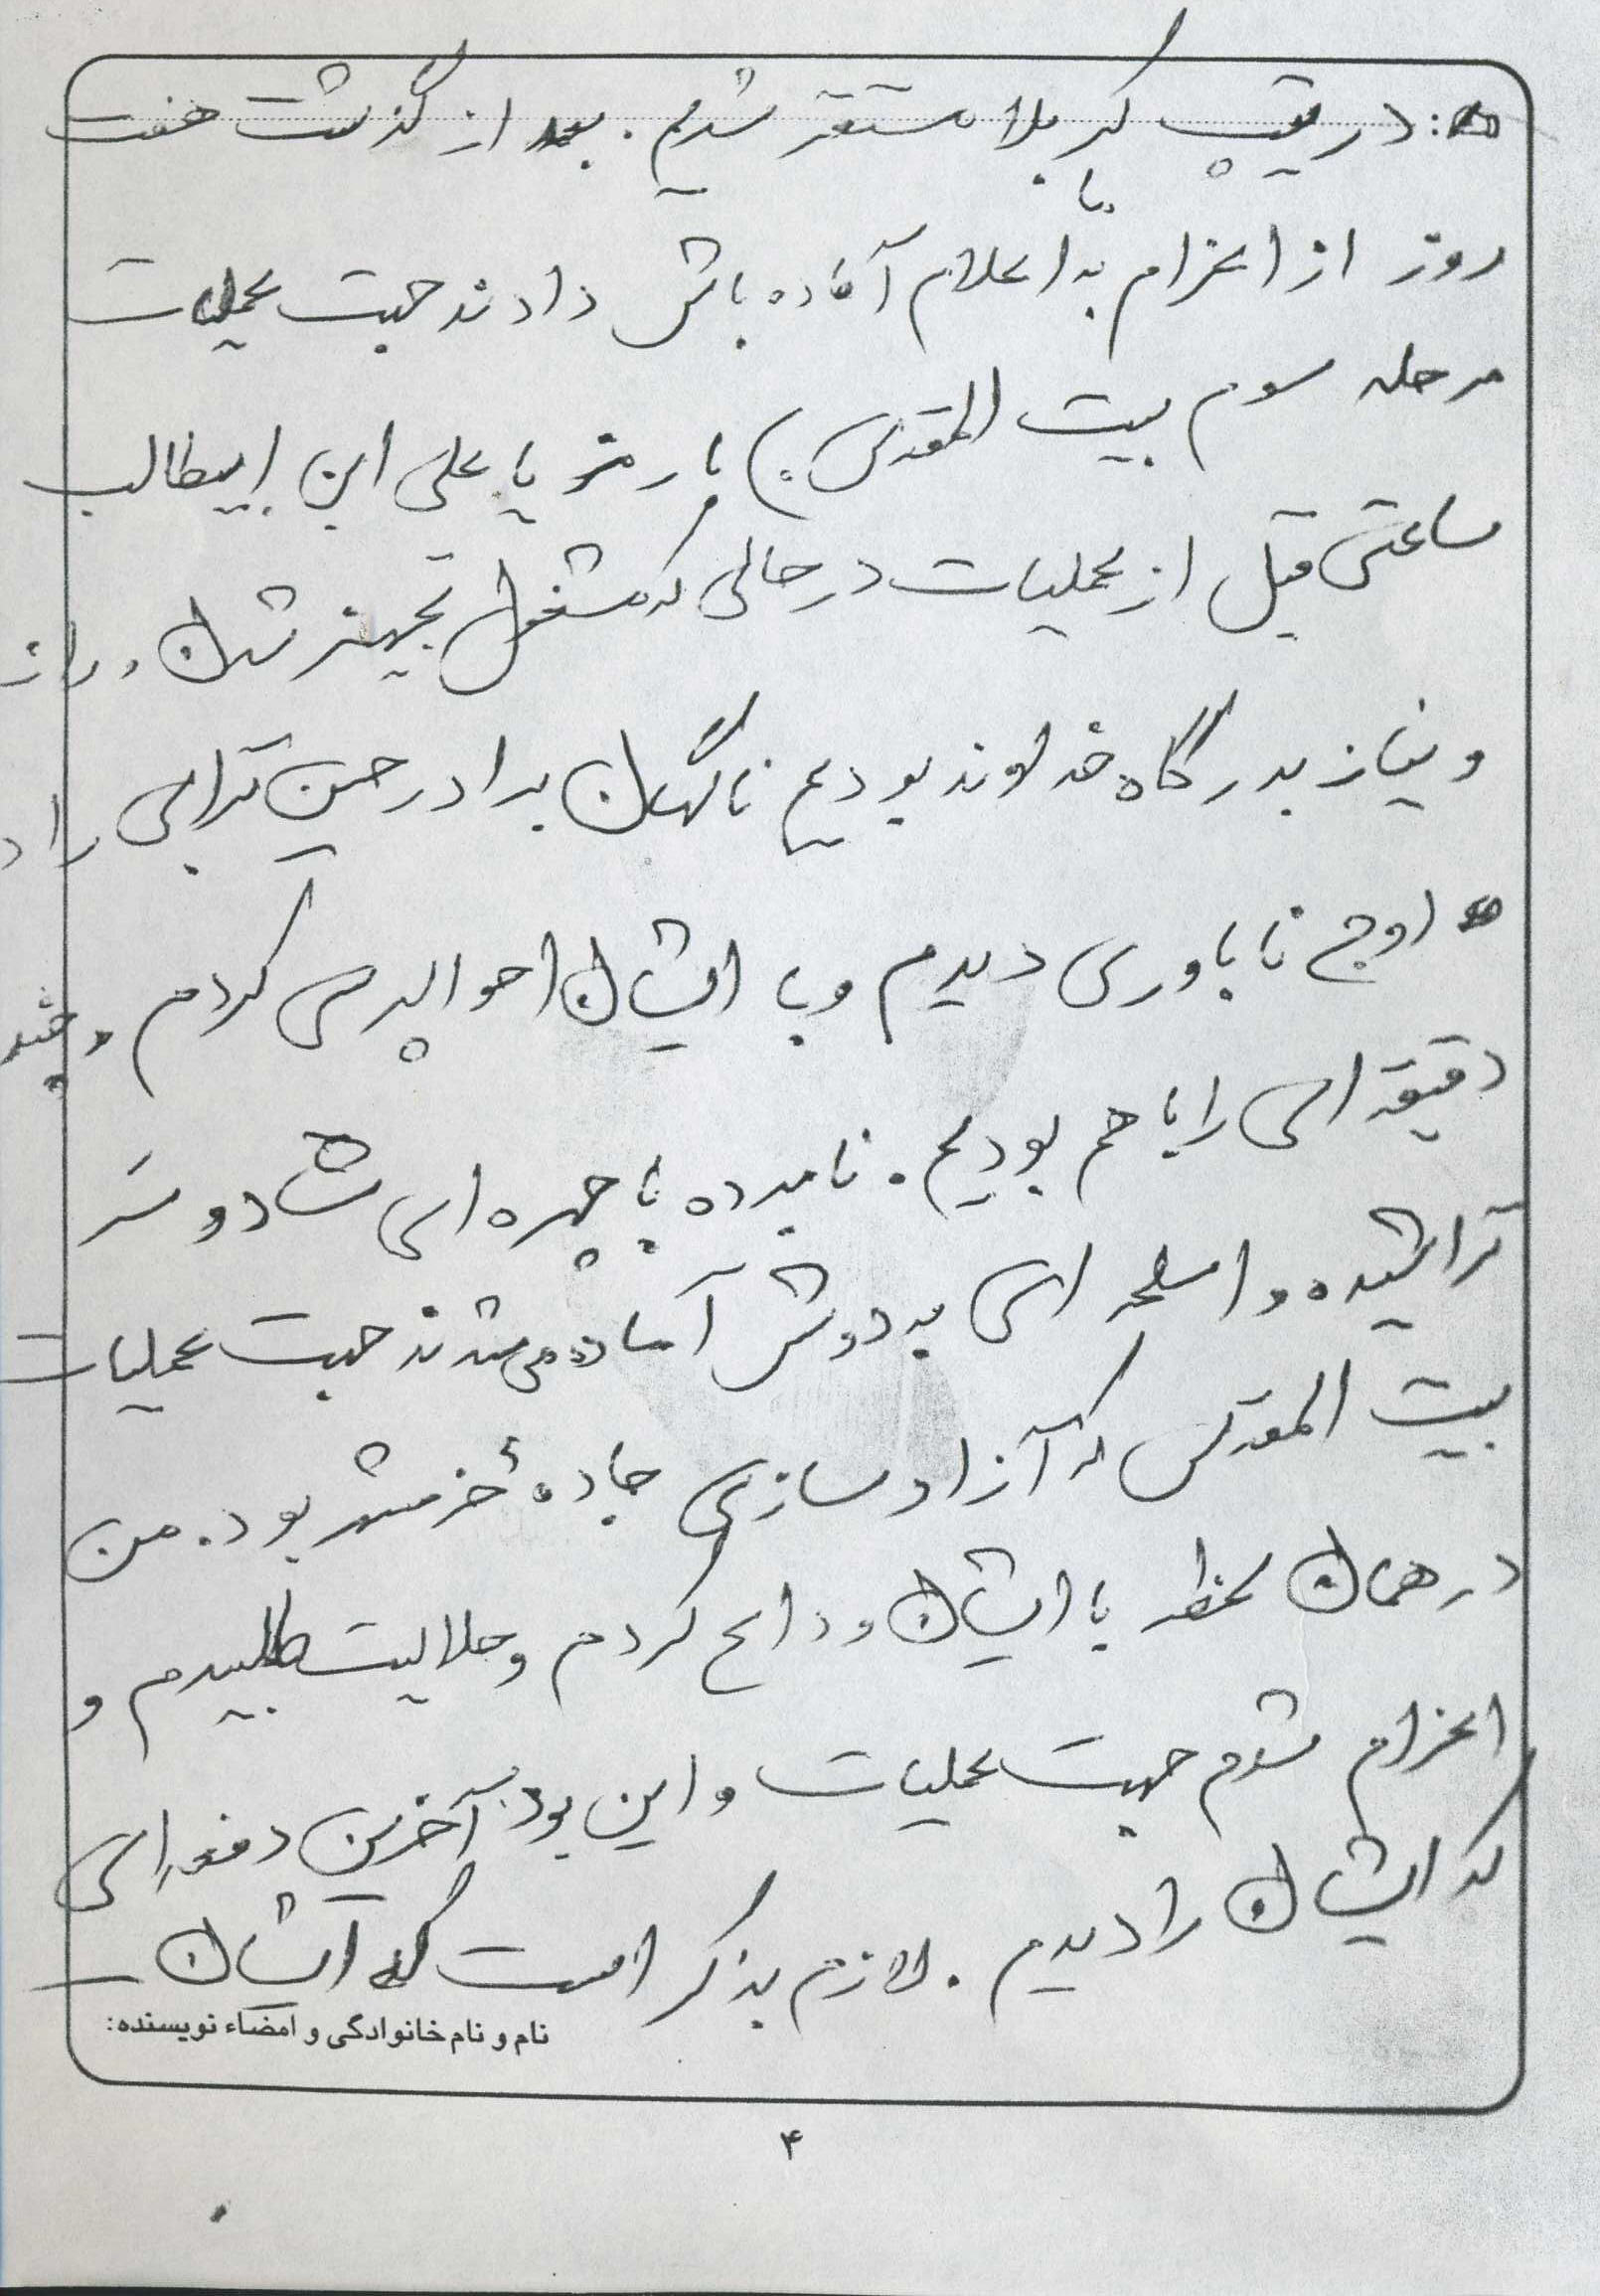 در تیپ کربلا مستقر شدیم. بعد از گذشت هفت
روز از اعزام با به اعلام آماده باش دادند جهت عملیات
مرحله سوم بیت المقدس) با رمز یا علی ابن ابیطالب
ساعتی قبل از عملیات در حالی که مشغول تجهیز شدن و راز
و نیاز بدرگاه خداوند بودیم ناگهان برادر حسن ترابی را در
اوج ناباوری دیدم و با ایشان احوالپرسی کردم و چند
دقیقه ای را با هم بودیم. نامبرده با چهره ای شاد و سَر
تراشیده و اسلحه ای به دوش آماده می شدند جهت عملیات
بیت المقدس که آزادسازی جادهٔ خرمشهر بود. من
در همان لحظه با ایشان وداع کردم و حلالیت طلبیدم و
اعزام شدم جهت عملیات و این بود آخرین دفعه ای
که ایشان را دیدم. لازم بذکر است که ایشان
نام و نام خانوادگی و امضاء نویسنده:
۴